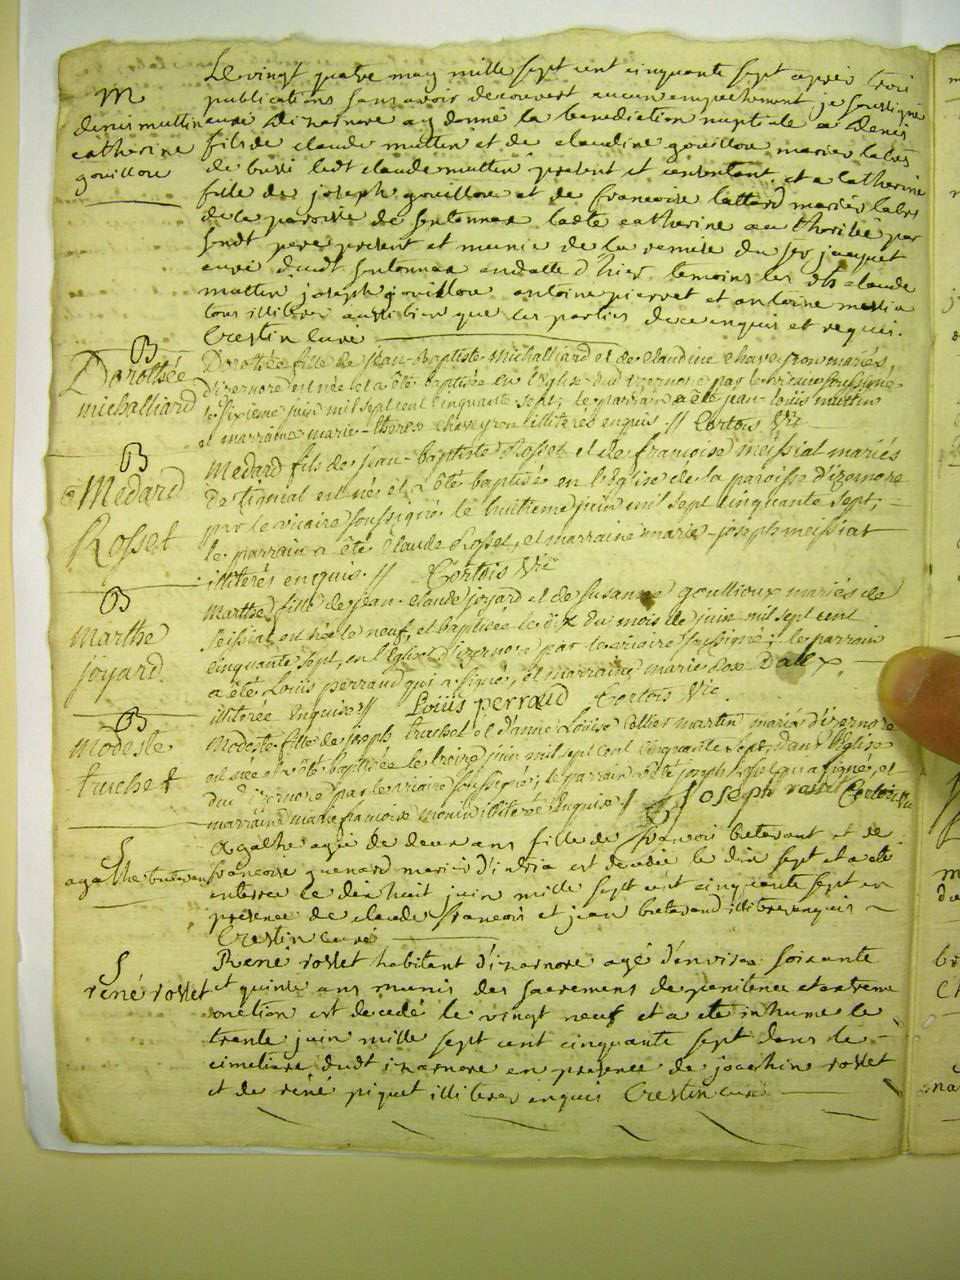 M
denis muttin
catherine
gouillou
Le vingt quatre may mille sept cent cinquante sept apres trois
publications sans avoir decouvert aucun empechement je soussigne
curé d'izarnore ay donné la benediction nuptiale a denis
fils de claude muttin et de claudine gouillou mariés labrs
de bussi ledt claude muttin present et consentant et a catherine
fille de joseph gouillou et de francoise lattard mariés labrs
de la paroisse de sonthonnax ladte catherine authorisée par
sondt pere present et munie de la remise du sr jacquet
curé dudt sonthonnax en datte d'hier temoins les dts claude
muttin joseph gouillou antoine pierret et antoine
tous illiteres aussi bien que les parties de ce enquis et requis.
Crestin curé
B
Dorothée
michalliard
Dorothée fille de jean-baptiste michalliard et de claudine chaveyron mariés
d'izernore est née et a été baptisée en l'église dud izernore par le vicaire soussigné
le sixième juin mil sept cent cinquante sept; le parrain a été jean-louis muttin
et marraine marie-therese chaveyron illiterés enquis // Cortois Vic
B
Medard
Rosset
Medard fils de jean-baptiste Rosset et de françoise meissiat mariés
de tignat est né et a été baptisé en l'église de la paroisse d'izernore
par le vicaire soussigné le huitieme juin mil sept cinquante sept;
le parrain a été Claude Rosset, et marraine marie-joseph meissiat
illiterés enquis. // Cortois Vic
B
Marthe
joyard
Marthe fille de jean-claude joyard et de susanne goullioux mariés de
Ceissiat est née le neuf, et baptisée le dix du mois de juin mil sept cent
cinquante sept, en l'église d'izernore par le vicaire soussigné; le parrain
a été Loüis perraud qui a signé, et marraine marie
illiterée enquise // Loüis perraud Cortois Vic.
B
Modeste
truchet
Modeste fille de joseph truchet et d'anne Louise Collier martin mariés d'izernore
est née et a été baptisée le treize juin mil sept cent cinquante sept dans l'église
dud izernore par le vicaire soussigné; le parrain a été joseph qui a signé, et
marraine marie françoise monin illiterée enquise // Joseph Cortois Vic
S
agathe
Agathe agée de deux ans fille de francois bretevant et de
francoise guenard mariés d'intria est decedée le dix sept et a ete
enterrée le dix huit juin mille sept cent cinquante sept en
presence de claude francois et jean illiteres enquis
Crestin curé
S
réné rosset
René rosset habitant d'izarnore agé d'environ soixante
et quinze ans munis des sacremens de penitence et extreme
onction est decedé le vingt neuf et a ete inhumé le
trente juin mille sept cent cinquante sept dans le
cimetiere dudt izarnore en presence de joachin rosset
et de réné piquet illiteres enquis Crestin curé